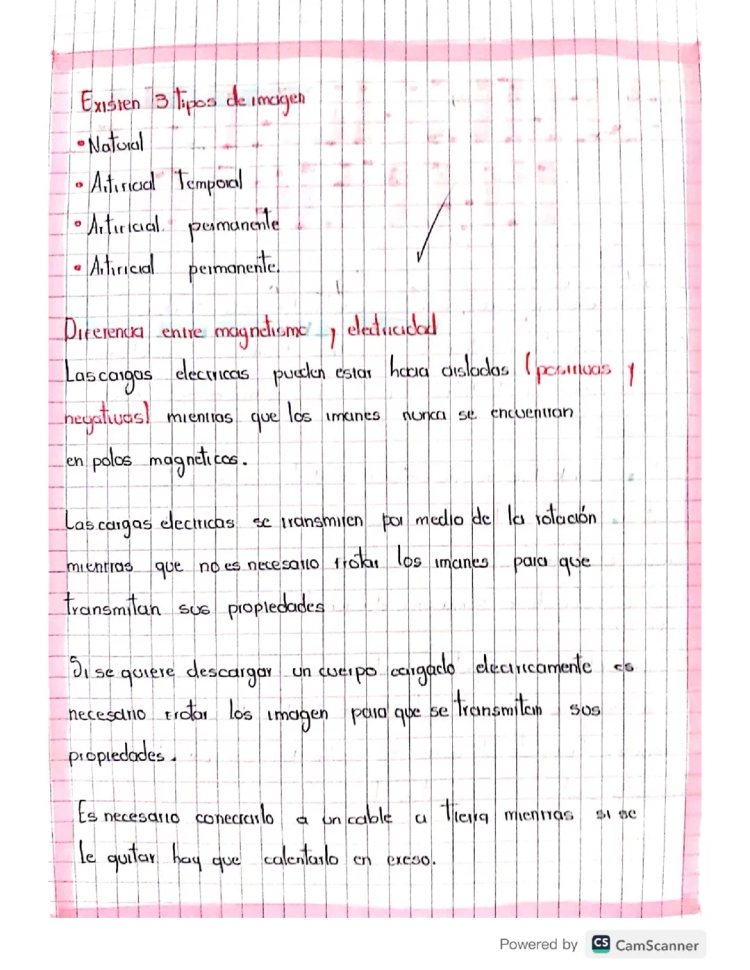 Existen 3 tipos de imagen
• Natural
• Artificial Temporal
• Artificial permanente
• Artificial permanente.
Diferencia entre magnetismo y electricidad
Las cargas electricas pueden estar aisladas (positivas y
negativas) mientras que los imanes nunca se encuentran
en polos magneticos.
Las cargas electricas se transmiten por medio de la rotación
mientras que no es necesario frotar los imanes para que
transmitan sus propiedades
Si se quiere descargar un cuerpo cargado electricamente es
necesario frotar los imagen para que se transmitan sus
propiedades.
Es necesario conectarlo a un cable a tierra mientras si se
le quitar hay que calentarlo en exeso.
Powered by CS CamScanner